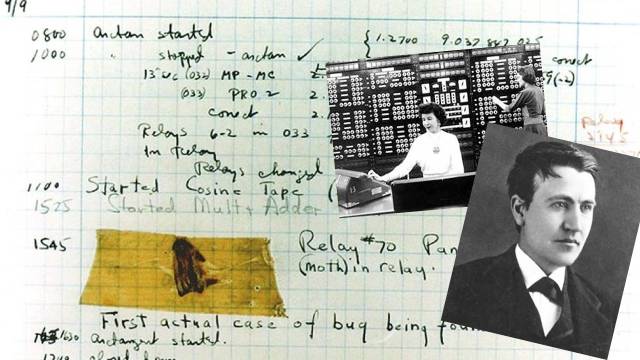 9/9
0800 Antan started { 1.2700 9.037 847 025
1000 " stopped - antan ✓
13"uc (033) MP - MC
(033) PRO 2 2.
conect 2. conect
Relays 6-2 in 033
In relay
Relays changed Relay
1100 Started Cosine Tape (
1525 Started Mult + Adder
1545 Relay #70 Pan
(moth) in relay.
First actual case of bug being
1630 antangent started.
closed down